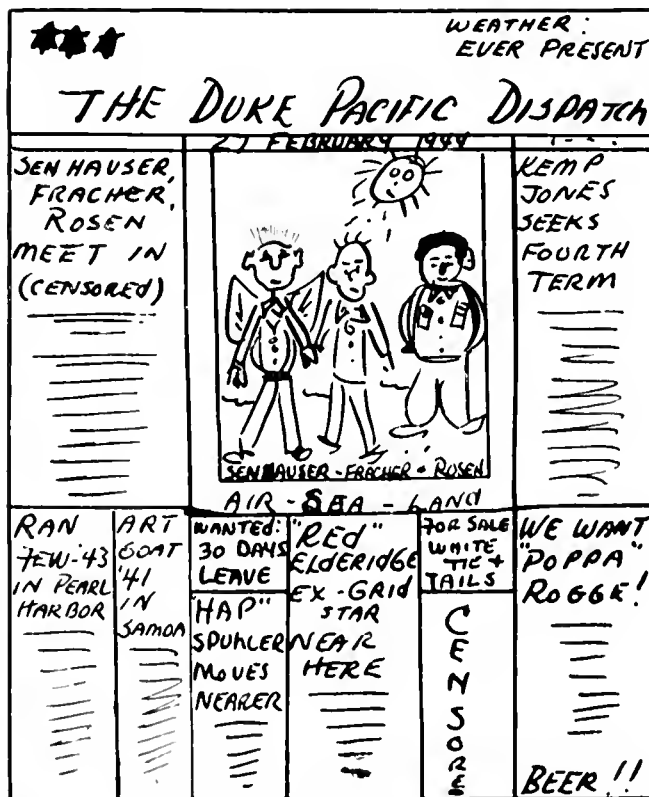 WEATHER:
EVER PRESENT
THE DUKE PACIFIC DISPATCH
27 FEBRUARY 1944
SEN HAUSER,
FRACHER,
ROSEN
MEET IN
(CENSORED)
SENHAUSER - FRACHER - ROSEN
AIR - SEA - LAND
KEMP
JONES
SEEKS
FOURTH
TERM
RAN
FEW - '43
IN PEARL
HARBOR
ART
GOAT
'41
IN
SAMOA
WANTED:
30 DAYS
LEAVE
"HAP"
SPUHLER
MOVES
NEARER
"RED"
ELDERIDGE
EX-GRID
STAR
NEAR
HERE
FOR SALE
WHITE
TIE +
TAILS
C
E
N
S
O
R
E
WE WANT
"POPPA"
ROGGE!
BEER!!